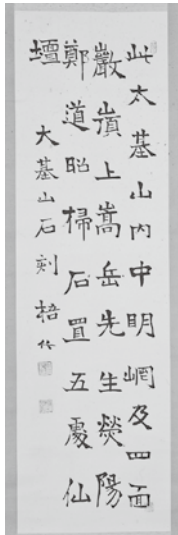 此太基山内中明岡及四面
巖嵿上嵩岳先生熒陽
鄭道昭掃石置五處仙
壇
大基山石刻 梧竹